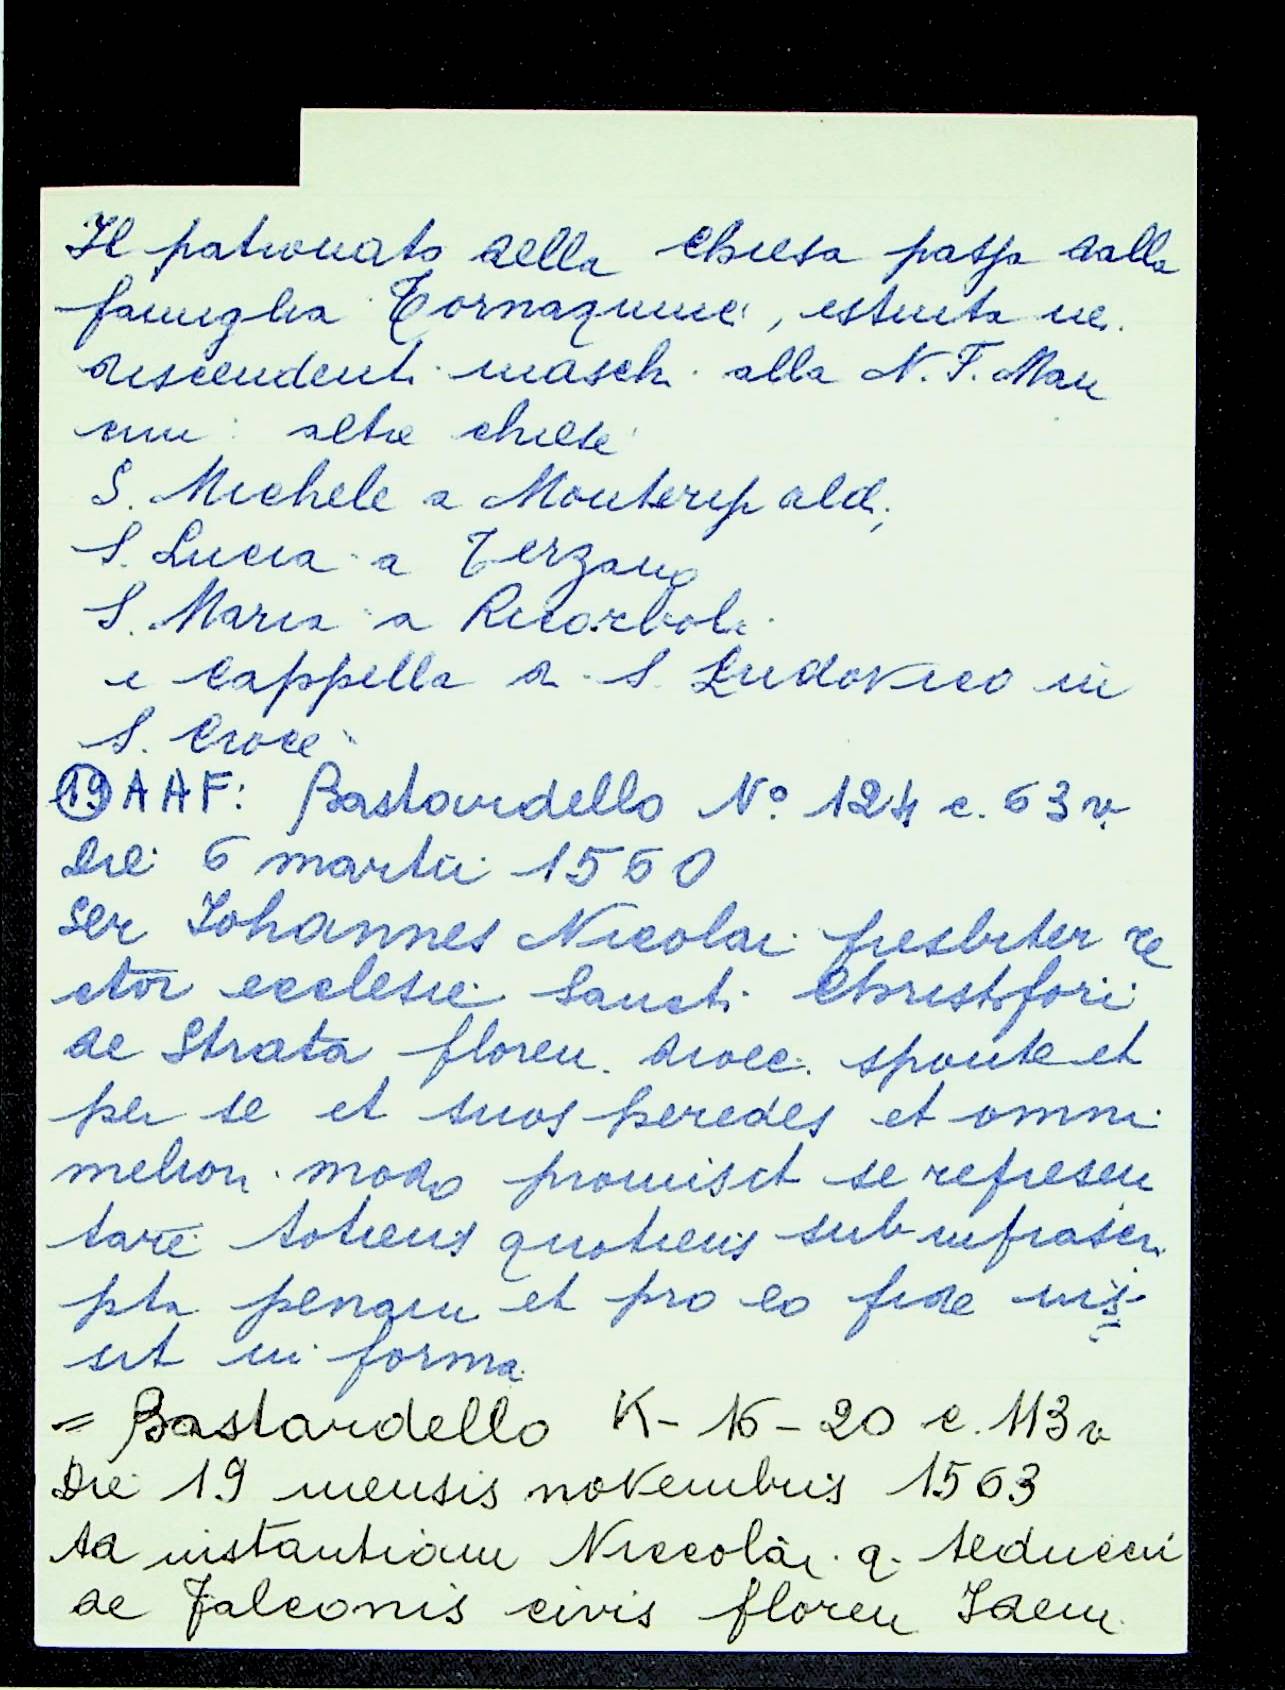 Il patronato della Chiesa passa dalla
famiglia Tornaquinci, estinta nei
discendenti maschi alla N. F. Man
cini: altre chiese
S. Michele a Monteripaldi,
S. Lucia a Terzano
S. Maria a Ricorboli
e Cappella di S. Ludovico in
S. Croce
(19) A A F: Bastardello N° 124 c. 63v
Die 6 martii 1560
Ser Johannes Nicolai presbiter re
ctor ecclesie Sancti Christofori
de Strata floren. dioec. sponte et
per se et suos heredes et omni
meliori modo promisit se represen
tare totiens quotiens sub infrascri
pta penam et pro eo fide
sit in forma
= Bastardello K-16-20 c. 113v
Die 19 mensis novembris 1563
Ad instantiam Niccolai q. Teduccii
de Falconis civis floren Idem